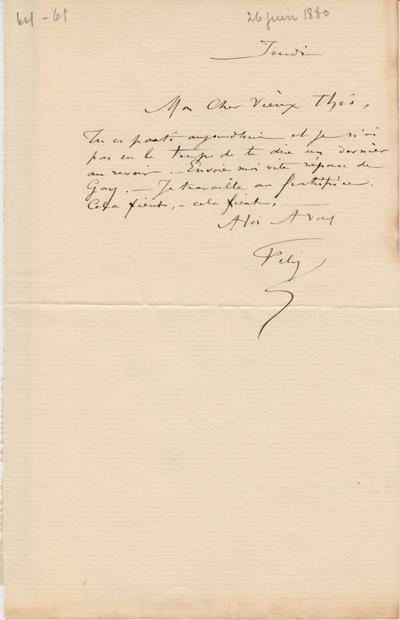 64 - 65
26 juin 1880
Jeudi
Mon Cher Vieux Théo,
Tu es parti aujourdhui et je n'ai
pas eu le temps de te dire un dernier
au revoir. - Envoie moi vite réponse de
Gay. - Je travaille au
Cela vient, - cela vient.
A toi
Félix